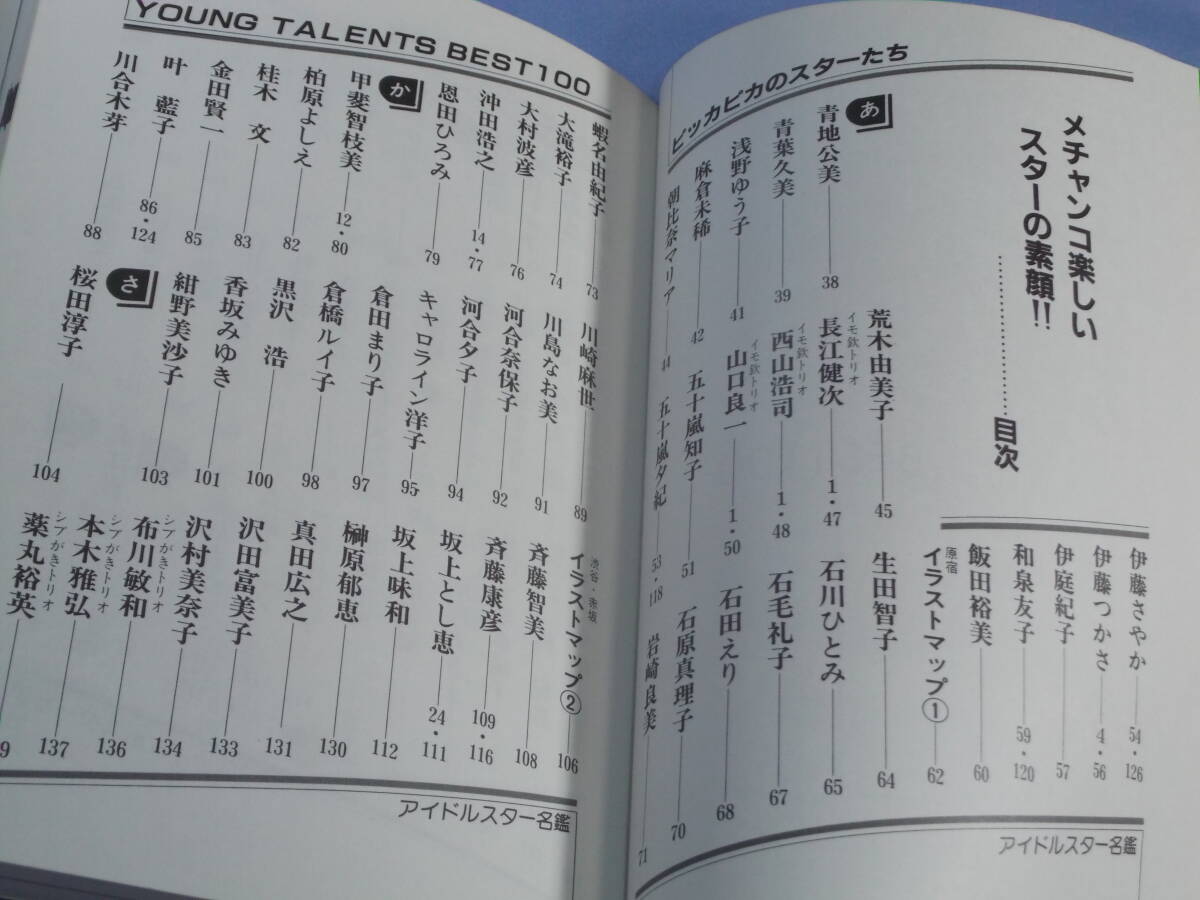 ピッカピカのスターたち
メチャンコ楽しい
スターの素顔!!
…………………目次
あ
青地公美 38
青葉久美 39
浅野ゆう子 41
麻倉未稀 42
朝比奈マリア 44
荒木由美子 45
イモ欽トリオ
長江健次 1・47
イモ欽トリオ
西山浩司 1・48
イモ欽トリオ
山口良一 1・50
五十嵐知子 51
五十嵐夕紀 53・118
伊藤さやか 54・126
伊藤つかさ 4・56
伊庭紀子 57
和泉友子 59・120
飯田裕美 60
原宿
イラストマップ① 62
生田智子 64
石川ひとみ 65
石毛礼子 67
石田えり 68
石原真理子 70
岩崎良美 71
アイドルスター名鑑
YOUNG TALENTS BEST100
蝦名由紀子 73
大滝裕子 74
大村波彦 76
沖田浩之 14・77
恩田ひろみ 79
か
甲斐智枝美 12・80
柏原よしえ 82
桂木 文 83
金田賢一 85
叶 藍子 86・124
川合木芽 88
川崎麻世 89
川島なお美 91
河合奈保子 92
河合夕子 94
キャロライン洋子 95
倉田まり子 97
倉橋ルイ子 98
黒沢 浩 100
香坂みゆき 101
紺野美沙子 103
さ
桜田淳子 104
渋谷・赤坂
イラストマップ② 106
斉藤智美 108
斉藤康彦 109・116
坂上とし恵 24・111
坂上味和 112
榊原郁恵 130
真田広之 131
沢田富美子 133
沢村美奈子 134
シブがきトリオ
布川敏和 136
シブがきトリオ
本木雅弘 137
シブがきトリオ
薬丸裕英 9
アイドルスター名鑑